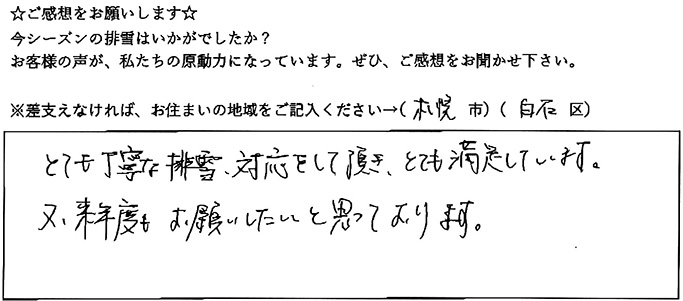 ☆ご感想をお願いします☆
今シーズンの排雪はいかがでしたか？
お客様の声が、私たちの原動力になっています。ぜひ、ご感想をお聞かせ下さい。
※差支えなければ、お住まいの地域をご記入ください→( 札幌 市) ( 白石 区)
とても丁寧な排雪、対応をして頂き、とても満足しています。
又、来年度もお願いしたいと思っております。